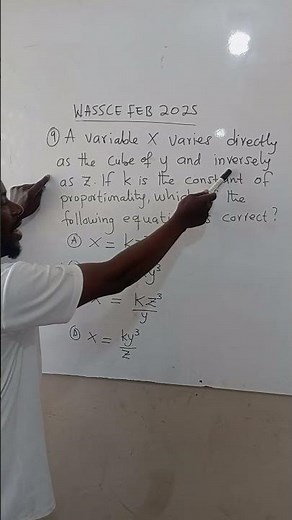 WASSCE FEB 2025
⑨ A variable X varies directly
as the cube of y and inversely
as Z. If k is the constant of
proportionality, which the
following correct?
Ⓐ X =
y³
X = Kz³/y
Ⓓ X = ky³/z